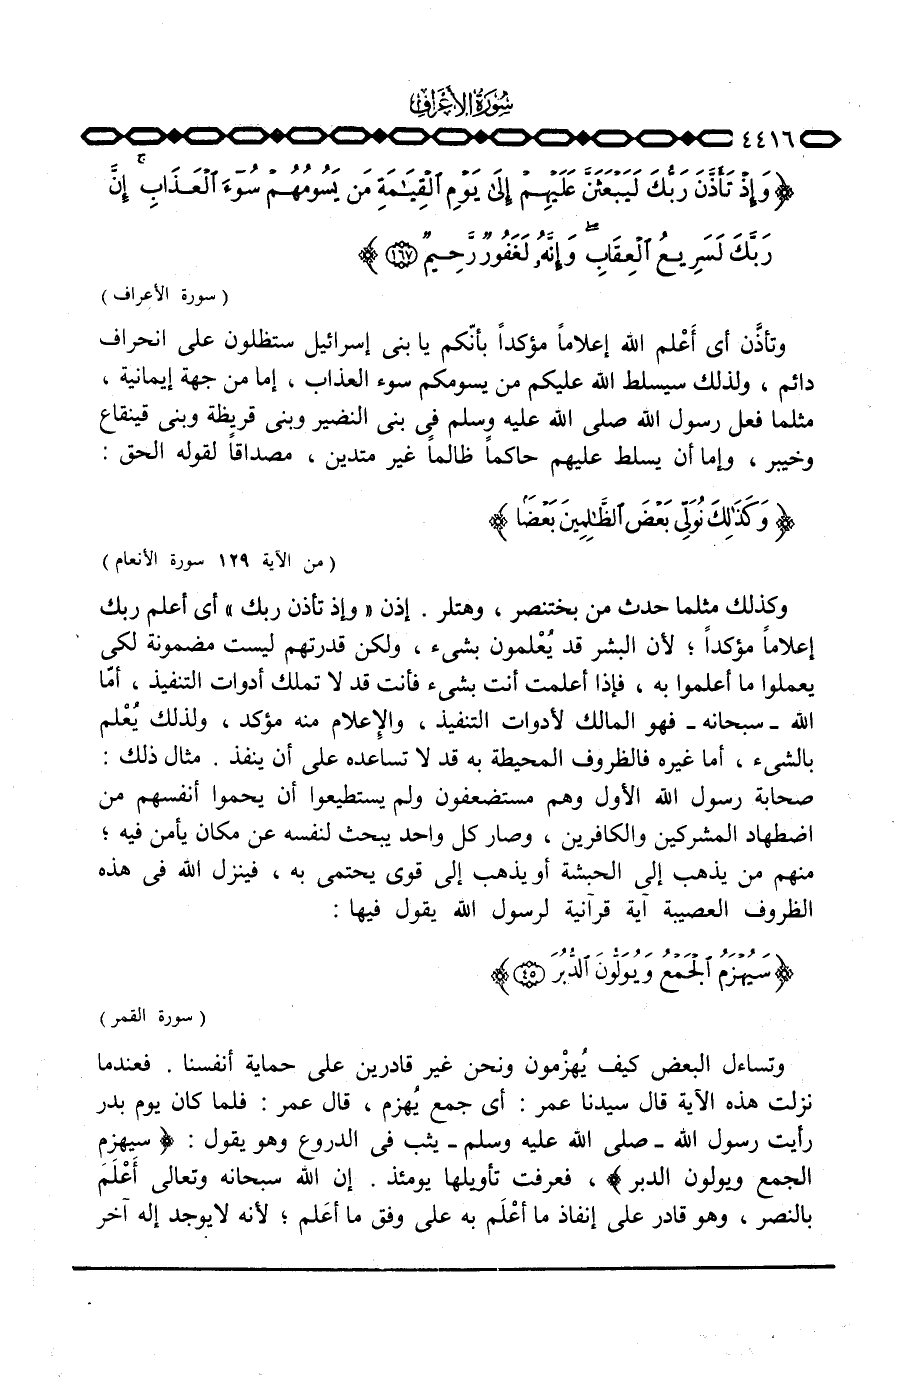 سُورَةُ الأَعْرَافِ
٤٤١٦
﴿ وَإِذْ تَأَذَّنَ رَبُّكَ لَيَبْعَثَنَّ عَلَيْهِمْ إِلَىٰ يَوْمِ ٱلْقِيَٰمَةِ مَن يَسُومُهُمْ سُوٓءَ ٱلْعَذَابِ ۗ إِنَّ
رَبَّكَ لَسَرِيعُ ٱلْعِقَابِ ۖ وَإِنَّهُۥ لَغَفُورٌ رَّحِيمٌ ١٦٧ ﴾
( سورة الأعراف )
وتأذَّن أى أَعْلم الله إعلاماً مؤكداً بأنّكم يا بنى إسرائيل ستظلون على انحراف
دائم ، ولذلك سيسلط الله عليكم من يسومكم سوء العذاب ، إما من جهة إيمانية ،
مثلما فعل رسول الله صلى الله عليه وسلم فى بنى النضير وبنى قريظة وبنى قينقاع
وخيبر ، وإما أن يسلط عليهم حاكماً ظالماً غير متدين ، مصداقاً لقوله الحق :
﴿ وَكَذَٰلِكَ نُوَلِّى بَعْضَ ٱلظَّٰلِمِينَ بَعْضًا ﴾
( من الآية ١٢٩ سورة الأنعام )
وكذلك مثلما حدث من بختنصر ، وهتلر . إذن « وإذ تأذن ربك » أى أعلم ربك
إعلاماً مؤكداً ؛ لأن البشر قد يُعْلمون بشىء ، ولكن قدرتهم ليست مضمونة لكى
يعملوا ما أعلموا به ، فإذا أعلمت أنت بشىء فأنت قد لا تملك أدوات التنفيذ ، أمّا
الله ـ سبحانه ـ فهو المالك لأدوات التنفيذ ، والإعلام منه مؤكد ، ولذلك يُعْلم
بالشىء ، أما غيره فالظروف المحيطة به قد لا تساعده على أن ينفذ . مثال ذلك :
صحابة رسول الله الأول وهم مستضعفون ولم يستطيعوا أن يحموا أنفسهم من
اضطهاد المشركين والكافرين ، وصار كل واحد يبحث لنفسه عن مكان يأمن فيه ؛
منهم من يذهب إلى الحبشة أو يذهب إلى قوى يحتمى به ، فينزل الله فى هذه
الظروف العصيبة آية قرآنية لرسول الله يقول فيها :
﴿ سَيُهْزَمُ ٱلْجَمْعُ وَيُوَلُّونَ ٱلدُّبُرَ ٤٥ ﴾
( سورة القمر )
وتساءل البعض كيف يُهزْمون ونحن غير قادرين على حماية أنفسنا . فعندما
نزلت هذه الآية قال سيدنا عمر : أى جمع يُهزم ، قال عمر : فلما كان يوم بدر
رأيت رسول الله ـ صلى الله عليه وسلم ـ يثب فى الدروع وهو يقول : ﴿ سيهزم
الجمع ويولون الدبر ﴾ ، فعرفت تأويلها يومئذ . إن الله سبحانه وتعالى أَعْلَمَ
بالنصر ، وهو قادر على إنفاذ ما أعْلَم به على وفق ما أَعَلم ؛ لأنه لا يوجد إله آخر